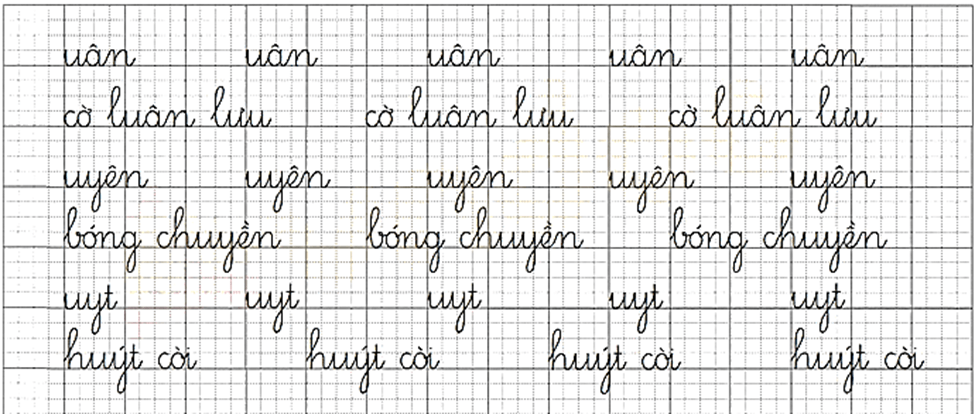 uân uân uân uân uân
cờ luân lưu cờ luân lưu cờ luân lưu
uyên uyên uyên uyên uyên
bóng chuyền bóng chuyền bóng chuyền
uyt uyt uyt uyt uyt
huýt còi huýt còi huýt còi huýt còi